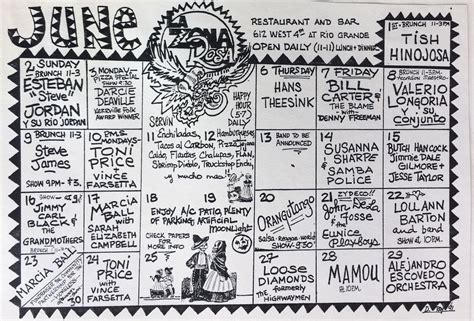 JUNE
LA ZONA Rosa
RESTAURANT AND BAR
612 WEST 4TH AT RIO GRANDE
OPEN DAILY (11-11) LUNCH + DINNER
1ST - BRUNCH 11-3PM
TISH
HINOJOSA
2 SUNDAY
BRUNCH 11-3
ESTEBAN
"Steve"
JORDAN
Y SU RIO JORDAN
3 MONDAY-
PIZZA SPECIAL
DARCIE
DEAVILLE
Kerrville Folk
AWARD WINNER
HAPPY
HOUR
DAILY
6 THURSDAY
HANS
THEESSINK
7 FRIDAY
BILL
CARTER &
THE BLAME
WITH
DENNY FREEMAN
8 BRUNCH 11-3PM
VALERIO
LONGORIA
y su
Conjunto
9 BRUNCH 11-3
Steve
James
SHOW 9PM-$3.
10 P.M.S.
MONDAYS
TONI
PRICE
WITH
VINCE
FARSETTA
SERVIN
11 Enchiladas,
Tacos al Carbon,
Caldo, Flautas, Chalupas, FLAN,
Shrimp, Diablo,
y mucho mas!
12 Hamburguesas,
13 BAND TO BE
ANNOUNCED
14
SUSANNA
SHARPE
and
SAMBA
POLICE
15
BUTCH HANCOCK
Jimmie Dale
GILMORE &
JESSE TAYLOR
16
JIMMY
CARL
BLACK &
THE
GRANDMOTHERS
17
MARCIA
BALL
WITH
SARAH
ELIZABETH
CAMPBELL
18
ENJOY A/C PATIO, PLENTY
OF PARKING, ARTIFICIAL
Moonlight
19
CHECK PAPERS
FOR
MORE INFO
20
Orangutango
Salsa-Reggae-World
SHOW 9:30
21 ZYDECO!!
John Delafose
& the
Eunice
Playboys
22
LOU ANN
BARTON
and band
show at 10PM.
23
MARCIA BALL
24
TONI
PRICE
with
VINCE
FARSETTA
25
27
LOOSE
DIAMONDS
the formerly
HIGHWAYMEN
28
MAMOU
at 10PM.
29
ALEJANDRO
ESCOVEDO
ORCHESTRA
30